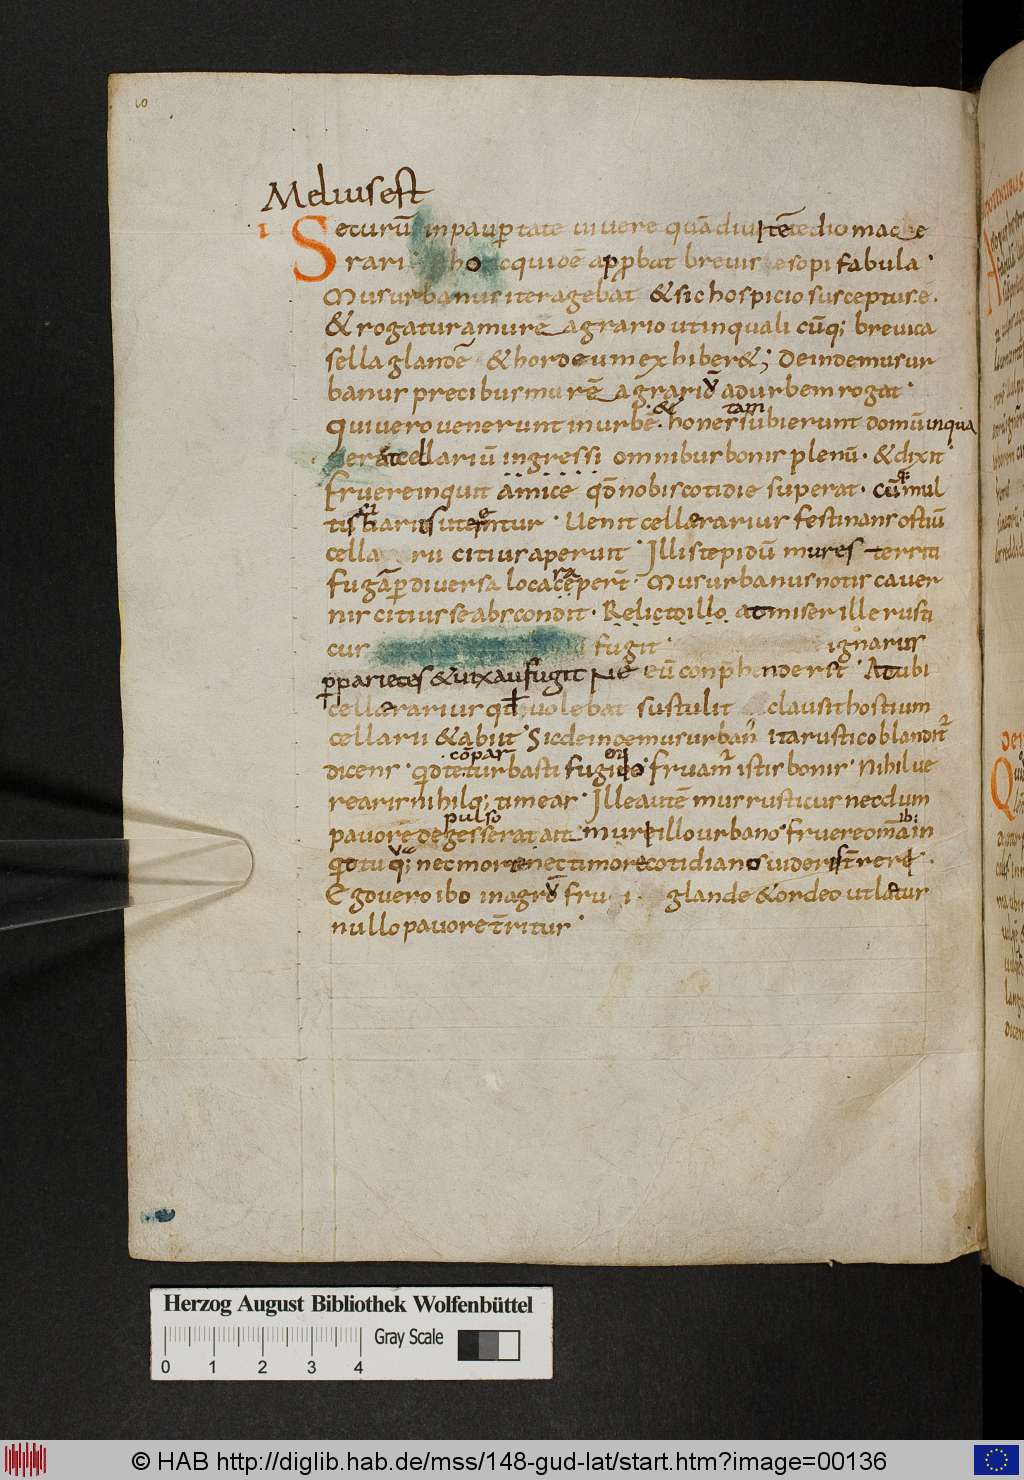 60
Meliusest
I Securū inpaupertate uiuere quā diuitē tedio mace
rari hoc quioē approbat breuis esopi fabula
Musurbanus iteragebat & sic hospicio susceptus.ē.
& rogatur a mure agrario ut in quali cūq; breui ca
sella glande & hordeum exhiber&; Deinde musur
banus precibus murē agrariū adurbem rogat
qui uero uenerunt inurbē & honestam subierunt domū in qua
erat cellariū ingressi omnibus bonis plenū. & dixit
fruere inquit amice qd nobis cotidie superat. Cūq; mul
tis ciariis uterentur. Uenit cellærarius festinans ostiū
cella rii citius aperuit Illi stepidū mures territi
fugā p diuersa loca ceperunt. Mus urbanus notis cauer
nis citius se abscondit. Relicto illo at miser ille rusti
cus fugit ignarus
p parietes & uix aufugit Ne eū conphenderst At ubi
cellærarius qd uolebat sustulit clausit hostium
cellarii & abiit Sic deinde mus urban' ita rustico blandit
dicens qid te turbasti fugiendo fruamur istis bonis Nihil ue
rearis nihilq; timeas Ille autē mus rusticus necdum
pulso
pauorē degesserat ait mus illo urbano fruere omā ibi in
qid tu q; nec morē nec timore cotidiano uideris trrere.
Ego uero ibo in agrū frui glande & ordeo ut latus
nullo pauore trritur
Herzog August Bibliothek Wolfenbüttel
Gray Scale
0 1 2 3 4
© HAB http://diglib.hab.de/mss/148-gud-lat/start.htm?image=00136